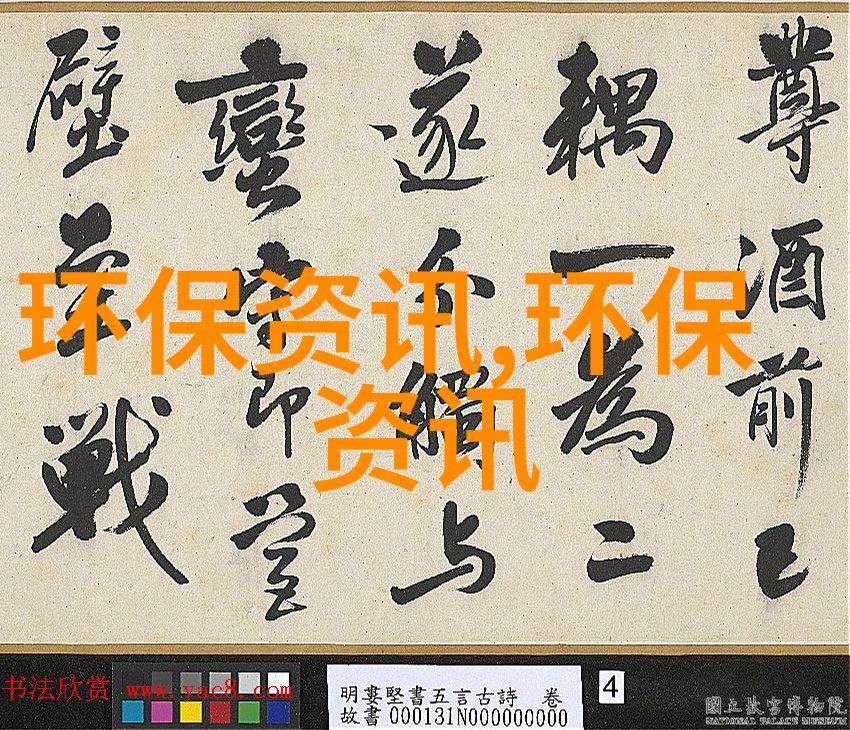 尊酒前已
耦一為二
遂分觸与
蠻
即營
壁罢戰
环保资讯,环保
资讯
书法欣赏 www.yac8.com
明婁堅書五言古詩 卷
故書000131N000000000
4
國立故宮博物院
NATIONAL PALACE MUSEUM